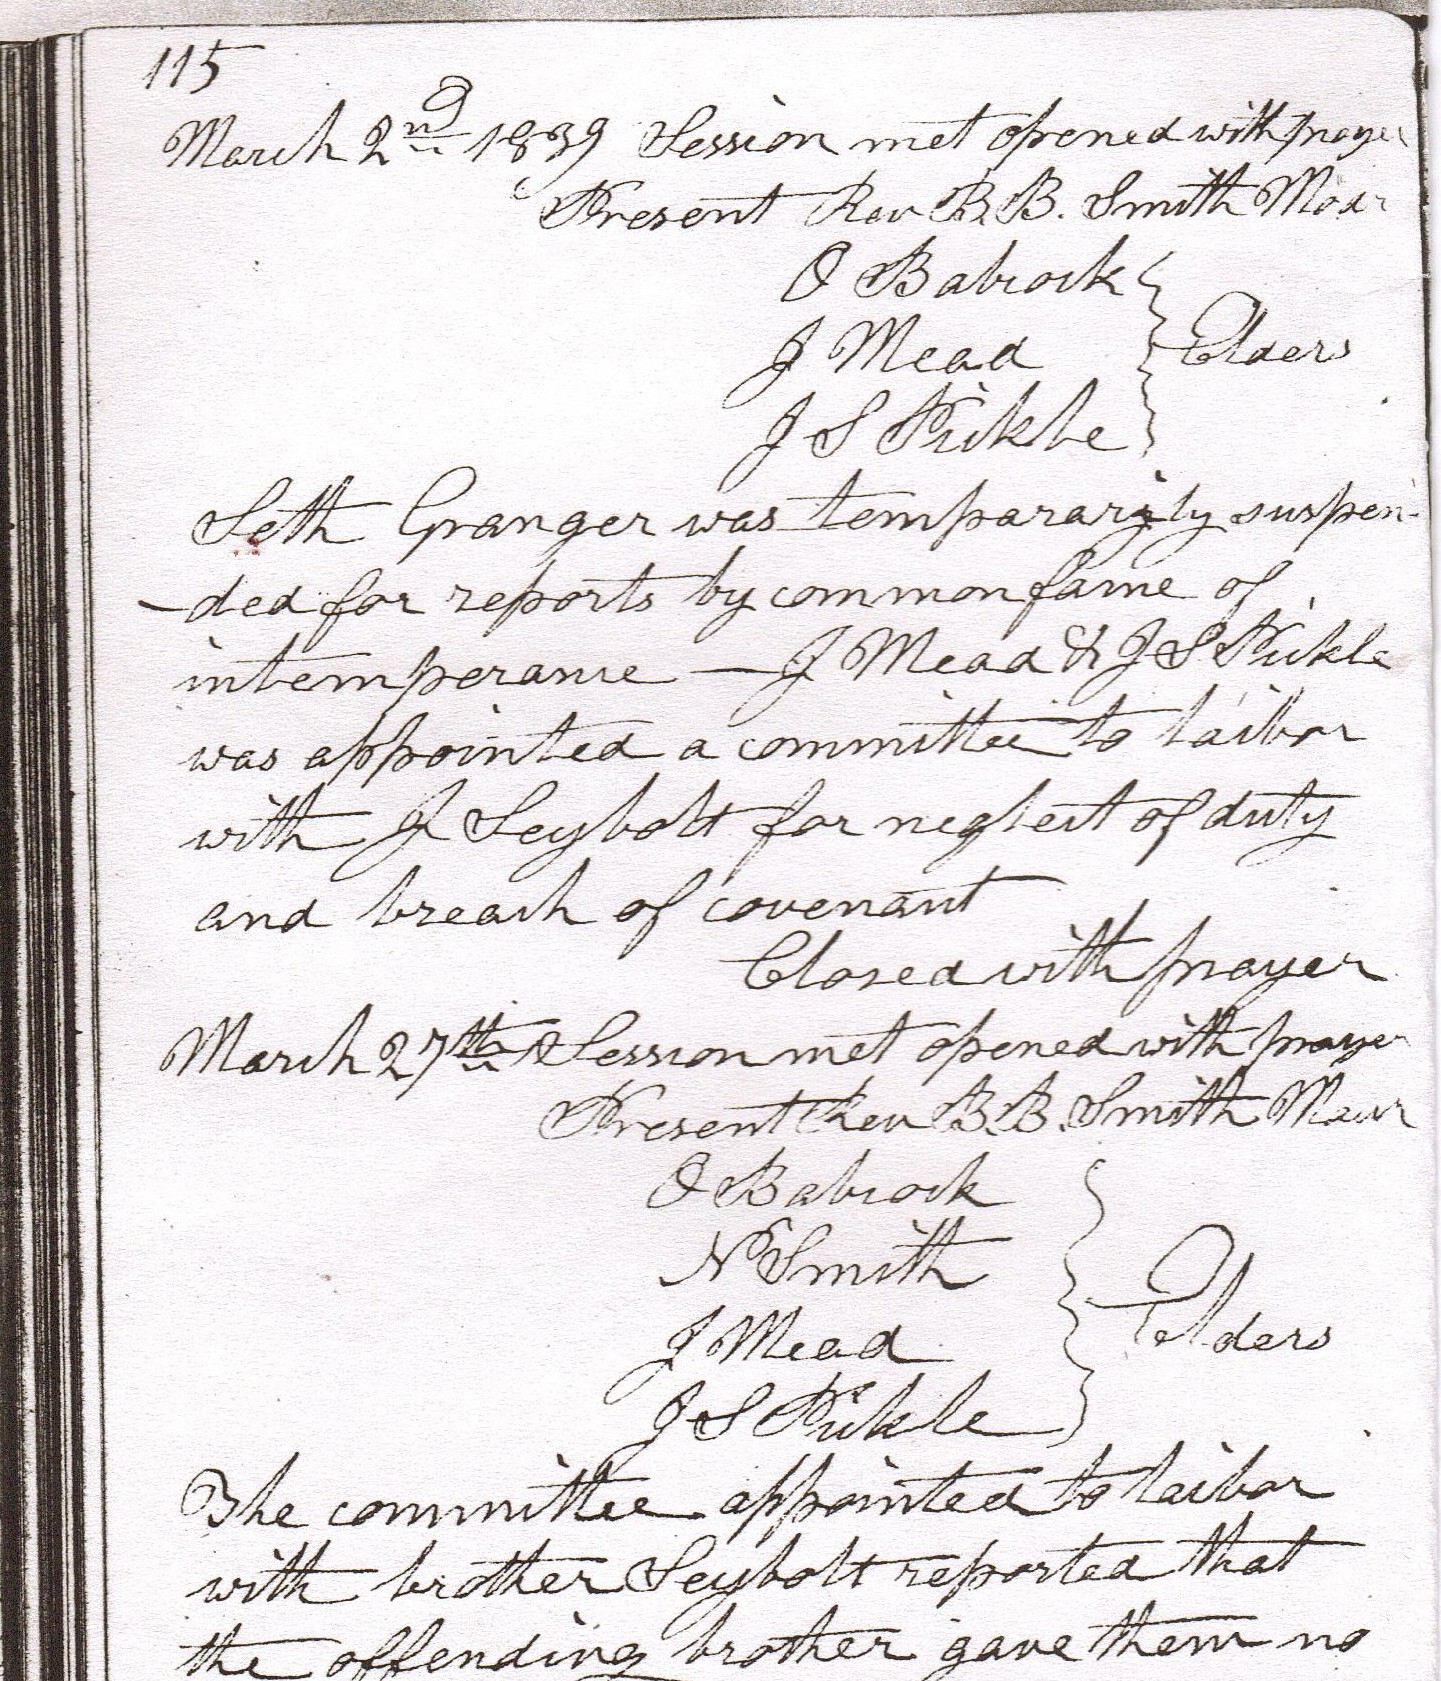 115
March 2nd 1839 Session met opened with prayer
Present Rev B. B. Smith Modr
O Babcock
J Mead } Elders
J S Pickle
Seth Granger was temporarily suspen-
ded for reports by common fame of
intemperance — J Mead & J S Pickle
was appointed a committee to laibor
with J Seybolt for neglect of duty
and breach of covenant
Closed with prayer
March 27th Session met opened with prayer
Present Rev B. B. Smith Modr
O Babcock
N Smith
J Mead } Elders
J S Pickle
The committee appointed to laibor
with brother Seybolt reported that
the offending brother gave them no